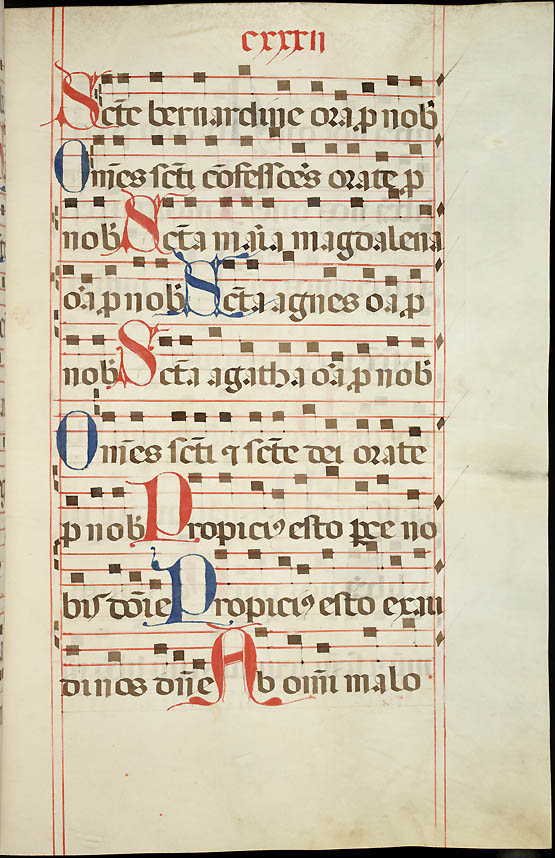 cxxxii
Scte bernardine ora p nob
Omes scti cōfessores orate p
nob Scta maria magdalena
ora p nob Scta agnes oa p
nob Scta agatha ora p nob
Omes scti ꝯ scte dei orate
p nob Propiciꝰ esto ꝑce no
bis dōie Propiciꝰ esto exau
di nos dn̄e Ab om̄i malo